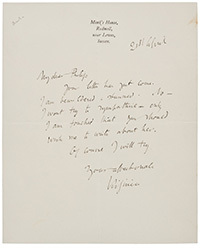 Monk's House,
Rodmell,
near Lewes,
Sussex.
My dear Philip
Your letter has just come.
I am bewildered
I won't try to sympathise - only
I am touched that you should
wish me to write about her.
Of course I will try
Yours affectionate
Virginia